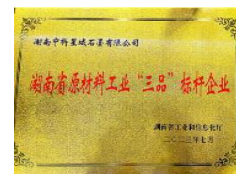 湖南中科星城石墨有限公司
湖南省原材料工业“三品”标杆企业
湖南省工业和信息化厅
二〇二三年七月